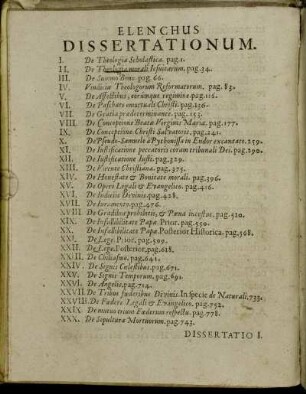 ELENCHUS
DISSERTATIONUM.
I. De Theologia Scholastica. pag. 1.
II. De Theologia morali Jesuitarum. pag. 34.
III. De Summo Bono. pag. 66.
IV. Vindiciæ Theologorum Reformatorum. pag. 83.
V. De Affectibus, eorumque regimine. pag. 115.
VI. De Paschate emortuali Christi. pag. 136.
VII. De Gratia prædeterminante. pag. 155.
VIII. De Conceptione Beatæ Virginis Mariæ. pag. 177.
IX. De Conceptione Christi Salvatoris. pag. 241.
X. De Pseudo-Samuele à Pythonissa in Endor excantato. 259.
XI. De Justificatione peccatoris coram tribunali Dei. pag. 290.
XII. De Justificatione Justi. pag. 329.
XIII. De Virtute Christiana. pag. 375.
XIV. De Honestate & Bonitate morali. pag. 396.
XV. De Opere Legali & Evangelico. pag. 416.
XVI. De Judiciis Divinis. pag. 428.
XVII. De Juramento. pag. 476.
XVIII. De Gradibus prohibitis, & Pœna incestus. pag. 510.
XIX. De Infallibilitate Papæ. Prior. pag. 550.
XX. De Infallibilitate Papæ Posterior Historica. pag. 568.
XXI. De Lege. Prior. pag. 599.
XXII. De Lege. Posterior. pag. 618.
XXIII. De Chiliasmo. pag. 641.
XXIV. De Signis Cœlestibus. pag. 671.
XXV. De Signis Temporum. pag. 691.
XXVI. De Angelis. pag. 714.
XXVII. De Tribus fœderibus Divinis. In specie de Naturali. 733.
XXVIII. De Fœdere Legali & Evangelico. pag. 752.
XXIX. De mutuo trium Fœderum respectu. pag. 778.
XXX. De Sepultura Mortuorum. pag. 743.
DISSERTATIO I.